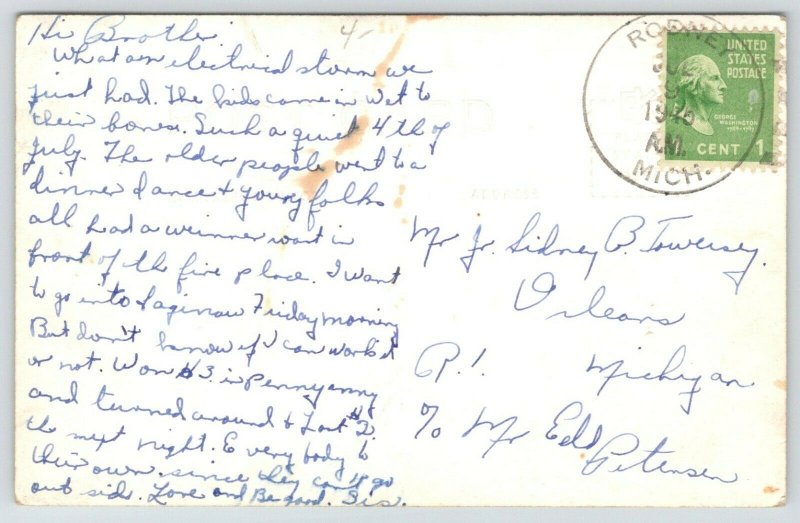 Hi Brother.
4-
What an electrical storm we
just had. The kids came in wet to
their bones. Such a quiet 4th of
July. The older people went to a
dinner dance & young folks
all had a weinner roast in
front of the fire place. I want
to go into Saginaw Friday morning
But don't know if I can work it
or not. Won $3. in Penny enny
and turned around & Lost $2.
the next night. Every body to
their own. since they can't go
out side. Love and Be good. Sis.
RODNEY
1946
A.M.
MICH.
UNITED
STATES
POSTAGE
GEORGE
WASHINGTON
1789-1797
CENT 1
ADDRESS
Mr Jr. Sidney B. Towersey.
Orleans
R.1. Michigan
% Mr Edd
Petersen